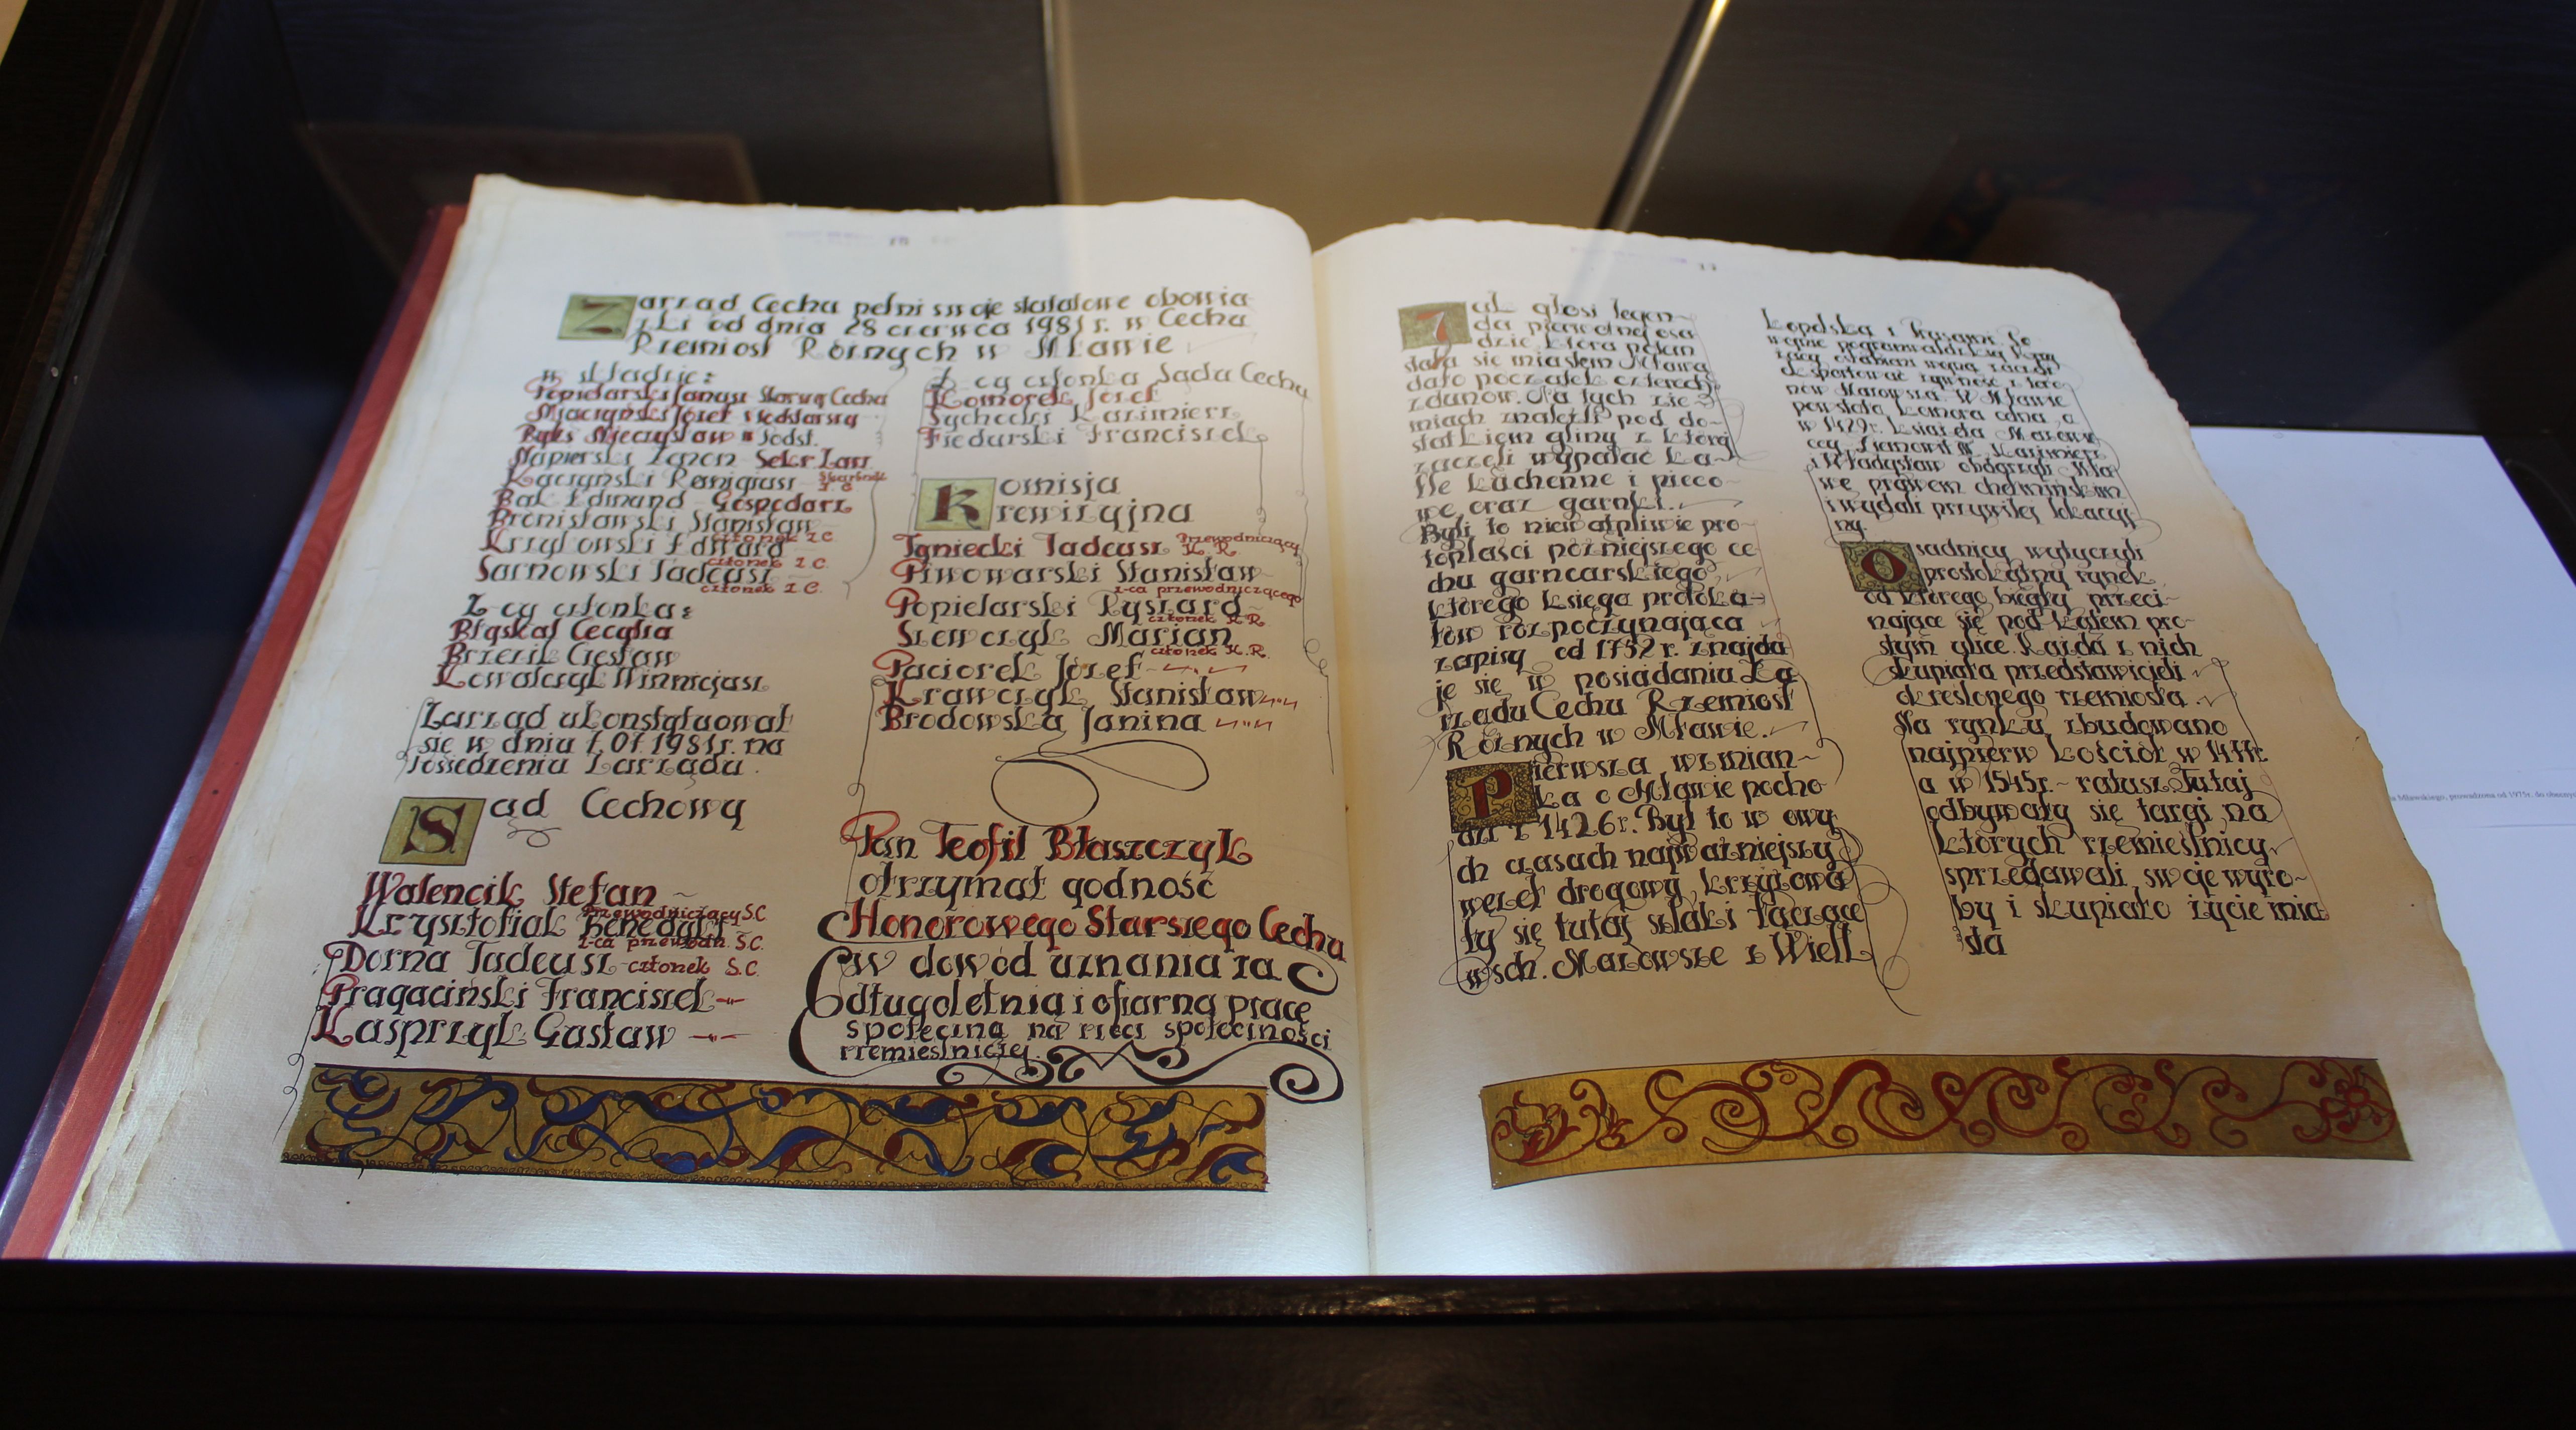 Zarząd Cechu pełni swoje statutowe obowią
zki od dnia 28 czerwca 1981 r. w Cechu
Rzemiosł Różnych w Mławie
w składzie:
Popielarski Janusz Starszy Cechu
Józef Podstarszy
Mieczysław " Podst.
Napierski Zenon Sekr Zarz.
Kaczyński Remigiusz Skarbnik
Z.C
Bąk Edmund Gospodarz
Bronisławski Stanisław
członek Z.C.
Krzykowski Edward
członek Z.C.
Sarnowski Tadeusz
członek Z.C.
Z-cy członka:
Błaskal Cecylia
Brzezik Czesław
Kowalczyk Winnicjusz
Zarząd ukonstytuował
się w dniu 1.07.1981r. na
Posiedzeniu Zarządu.
Sąd Cechowy
Walencik Stefan
Przewodniczący S.C
Krysztofiak Benedykt
z-ca przewodn. S.C.
Dorna Tadeusz członek S.C.
Pragaciński Franciszek -"-
Kasprzyk Gustaw -"-
Z-cy członka Sądu Cechu
Komorek Józef
Sychocki Kazimierz
Fiedurski Franciszek
Komisja
rewizyjna
Igniecki Tadeusz Przewodniczący
K.R
Piwowarski Stanisław
z-ca przewodniczącego
Popielarski Ryszard
członek K.R
Szewczyk Marian
członek K.R.
Paciorek Józef -"-
Krawczyk Stanisław -"-
Brodowska Janina -"-
Pan Teofil Błaszczyk
otrzymał godność
Honorowego Starszego Cechu
w dowód uznania za
długoletnią i ofiarną pracę
społeczną na rzecz społeczności
rzemieślniczej.
10
11
Jak głosi legen-
da pierwotnej osa
dzie która potem
stała się miastem Mława
dało początek czterech
zdunów. Na tych zie-
miach znaleźli pod do-
statkiem gliny z której
zaczęli wypalać ka-
fle kuchenne i pieco-
we oraz garnki.
Byli to niewątpliwie pro-
toplaści późniejszego ce-
chu garncarskiego,
którego księga protoka-
łów rozpoczynająca
zapisy od 1752 r. znajdu
je się w posiadaniu Za
rządu Cechu Rzemiosł
Różnych w Mławie.
Pierwsza wzmian-
ka o Mławie pocho
dzi z 1426r. Był to w owy
ch czasach najważniejszy
węzeł drogowy krzyżowa
ły się tutaj szlaki łączące
wsch. Mazowsze z Wielk
opolską i Prusami. Po
wojnie
eksportować żywność i
nów Mazowsza. W Mławie
powstała komora celna, a
w 1429r. książęta Mazowie
ccy Ziemowit III, Kazimierz
i Władysław obdarzyli Mła
wę prawem chełmińskim
i wydali przywilej lokacyj
ny.
Osadnicy wytyczyli
prostokątny rynek,
od którego biegły przeci-
nające się pod kątem pro-
stym ulice. Każda z nich
skupiała przedstawicieli
określonego rzemiosła.
Na rynku zbudowano
najpierw kościół w
a w 1545r.- ratusz. Tutaj
odbywały się targi na
których rzemieślnicy
sprzedawali swoje wyro-
by i skupiało życie mia
sta
Milewskiego, prowadzona od 1975r. do